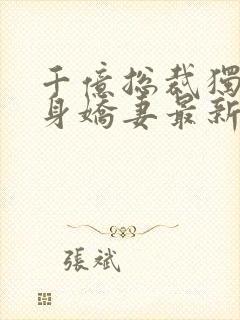 千億總裁獨
身嬌妻最新
張斌